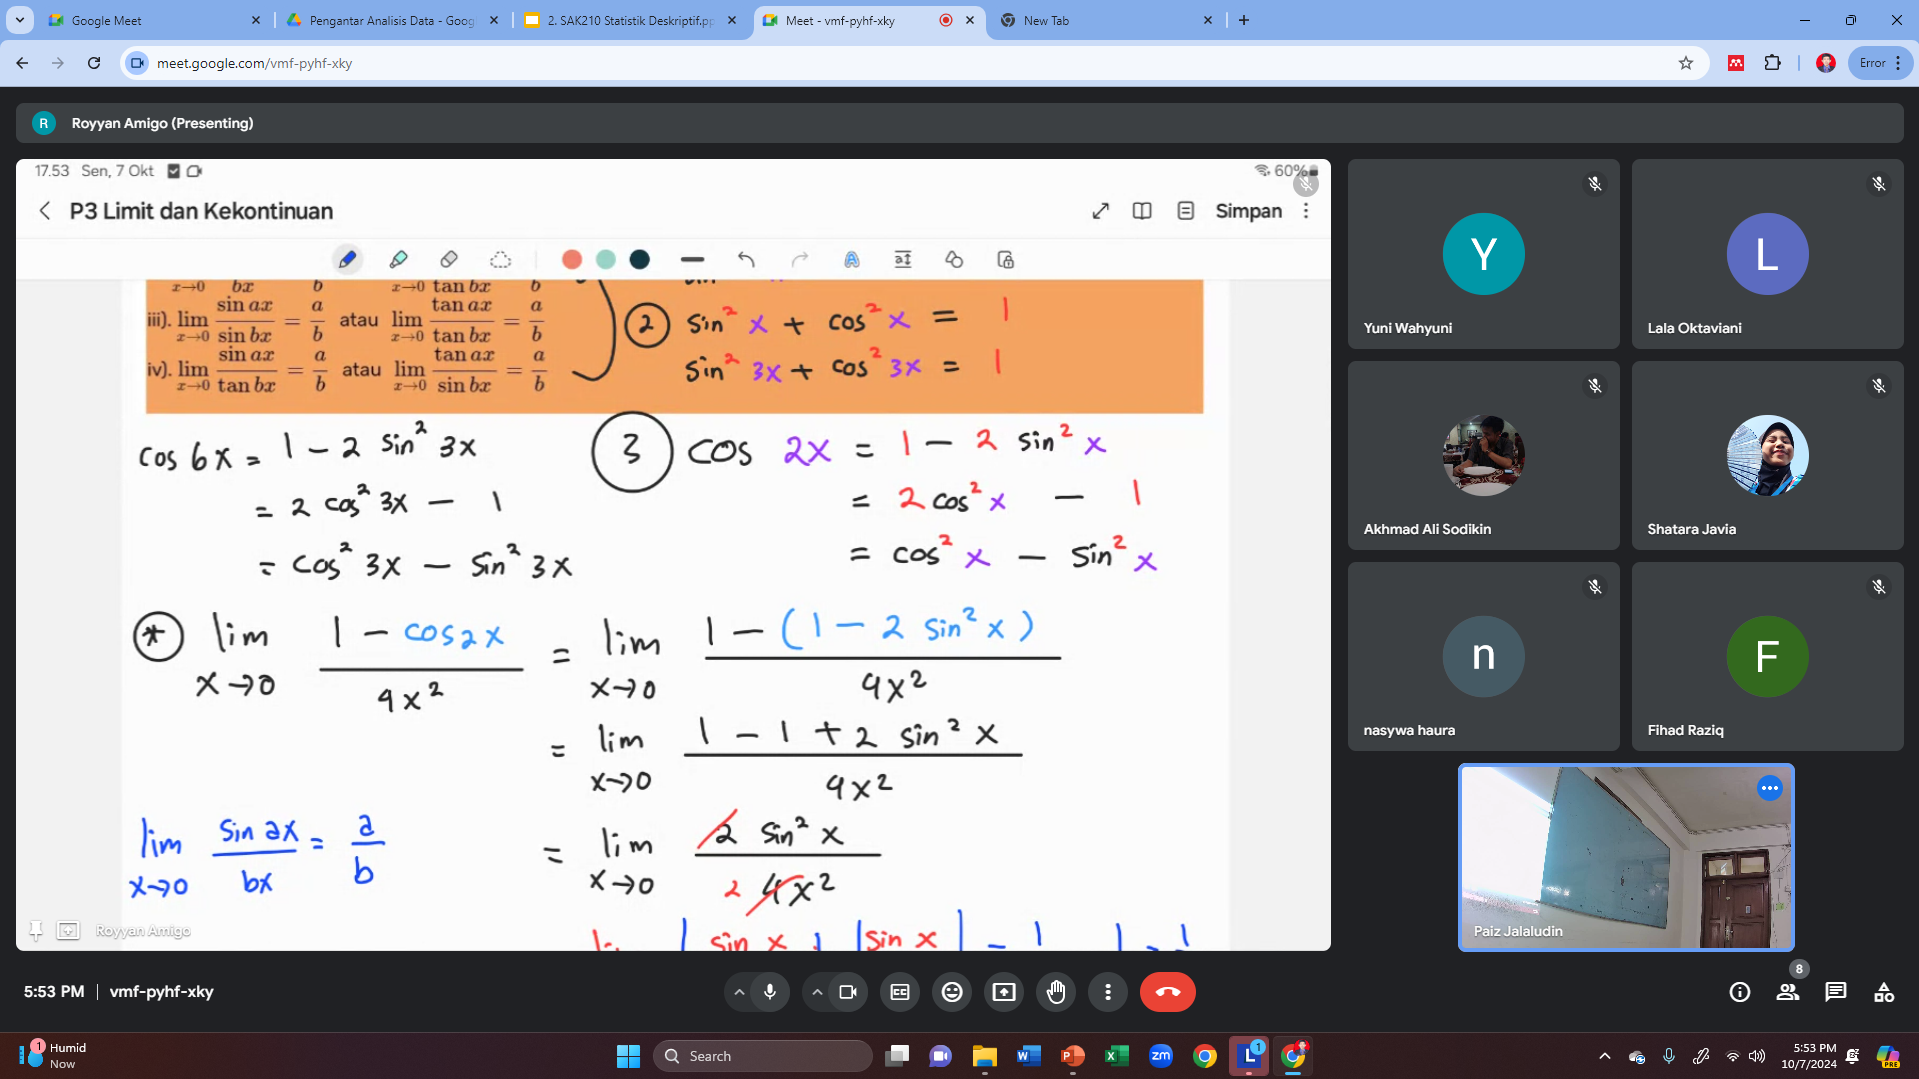 Google Meet
Pengantar Analisis Data - Goog
2. SAK210 Statistik Deskriptif.pp
Meet - vmf-pyhf-xky
New Tab
meet.google.com/vmf-pyhf-xky
Error
R
Royyan Amigo (Presenting)
17.53 Sen, 7 Okt
60%
P3 Limit dan Kekontinuan
Simpan
x→0 bx b x→0 tan bx b
iii). lim x→0 sin ax / sin bx = a/b atau lim x→0 tan ax / tan bx = a/b
iv). lim x→0 sin ax / tan bx = a/b atau lim x→0 tan ax / sin bx = a/b
2 sin² x + cos² x = 1
sin² 3x + cos² 3x = 1
cos 6x = 1 - 2 sin² 3x
= 2 cos² 3x - 1
= cos² 3x - sin² 3x
3 cos 2x = 1 - 2 sin² x
= 2 cos² x - 1
= cos² x - sin² x
* lim x→0 1 - cos 2x / 4x² = lim x→0 1 - (1 - 2 sin² x) / 4x²
= lim x→0 1 - 1 + 2 sin² x / 4x²
= lim x→0 2 sin² x / 2 4x²
lim x→0 sin ax / bx = a/b
sin x sin x
Royyan Amigo
Y
Yuni Wahyuni
L
Lala Oktaviani
Akhmad Ali Sodikin
Shatara Javia
n
nasywa haura
F
Fihad Raziq
Paiz Jalaludin
5:53 PM | vmf-pyhf-xky
8
1
Humid
Now
Search
W
P
X
zm
L
1
5:53 PM
10/7/2024
PRE